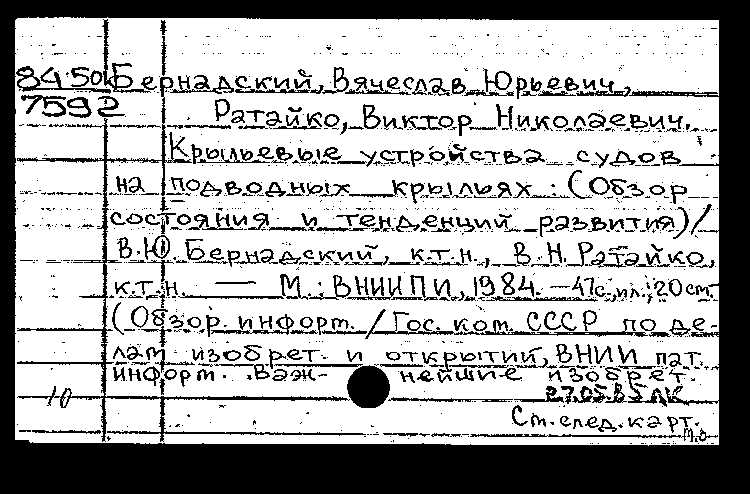 84.50к Бернадский, Вячеслав Юрьевич,
7592 Ратайко, Виктор Николаевич.
Крыльевые устройства судов
на подводных крыльях : (Обзор
состояния и тенденций развития) /
В.Ю. Бернадский, к.т.н., В.Н. Ратайко,
к.т.н. — М. : ВНИИПИ, 1984. — 47с., ил.; 20 cm.
(Обзор. информ. / Гос. ком. СССР по де-
лам изобрет. и открытий, ВНИИ пат.
информ. Важ- нейшие изобрет.
10 27.05.85 ЛК
См. след. карт.
М.О